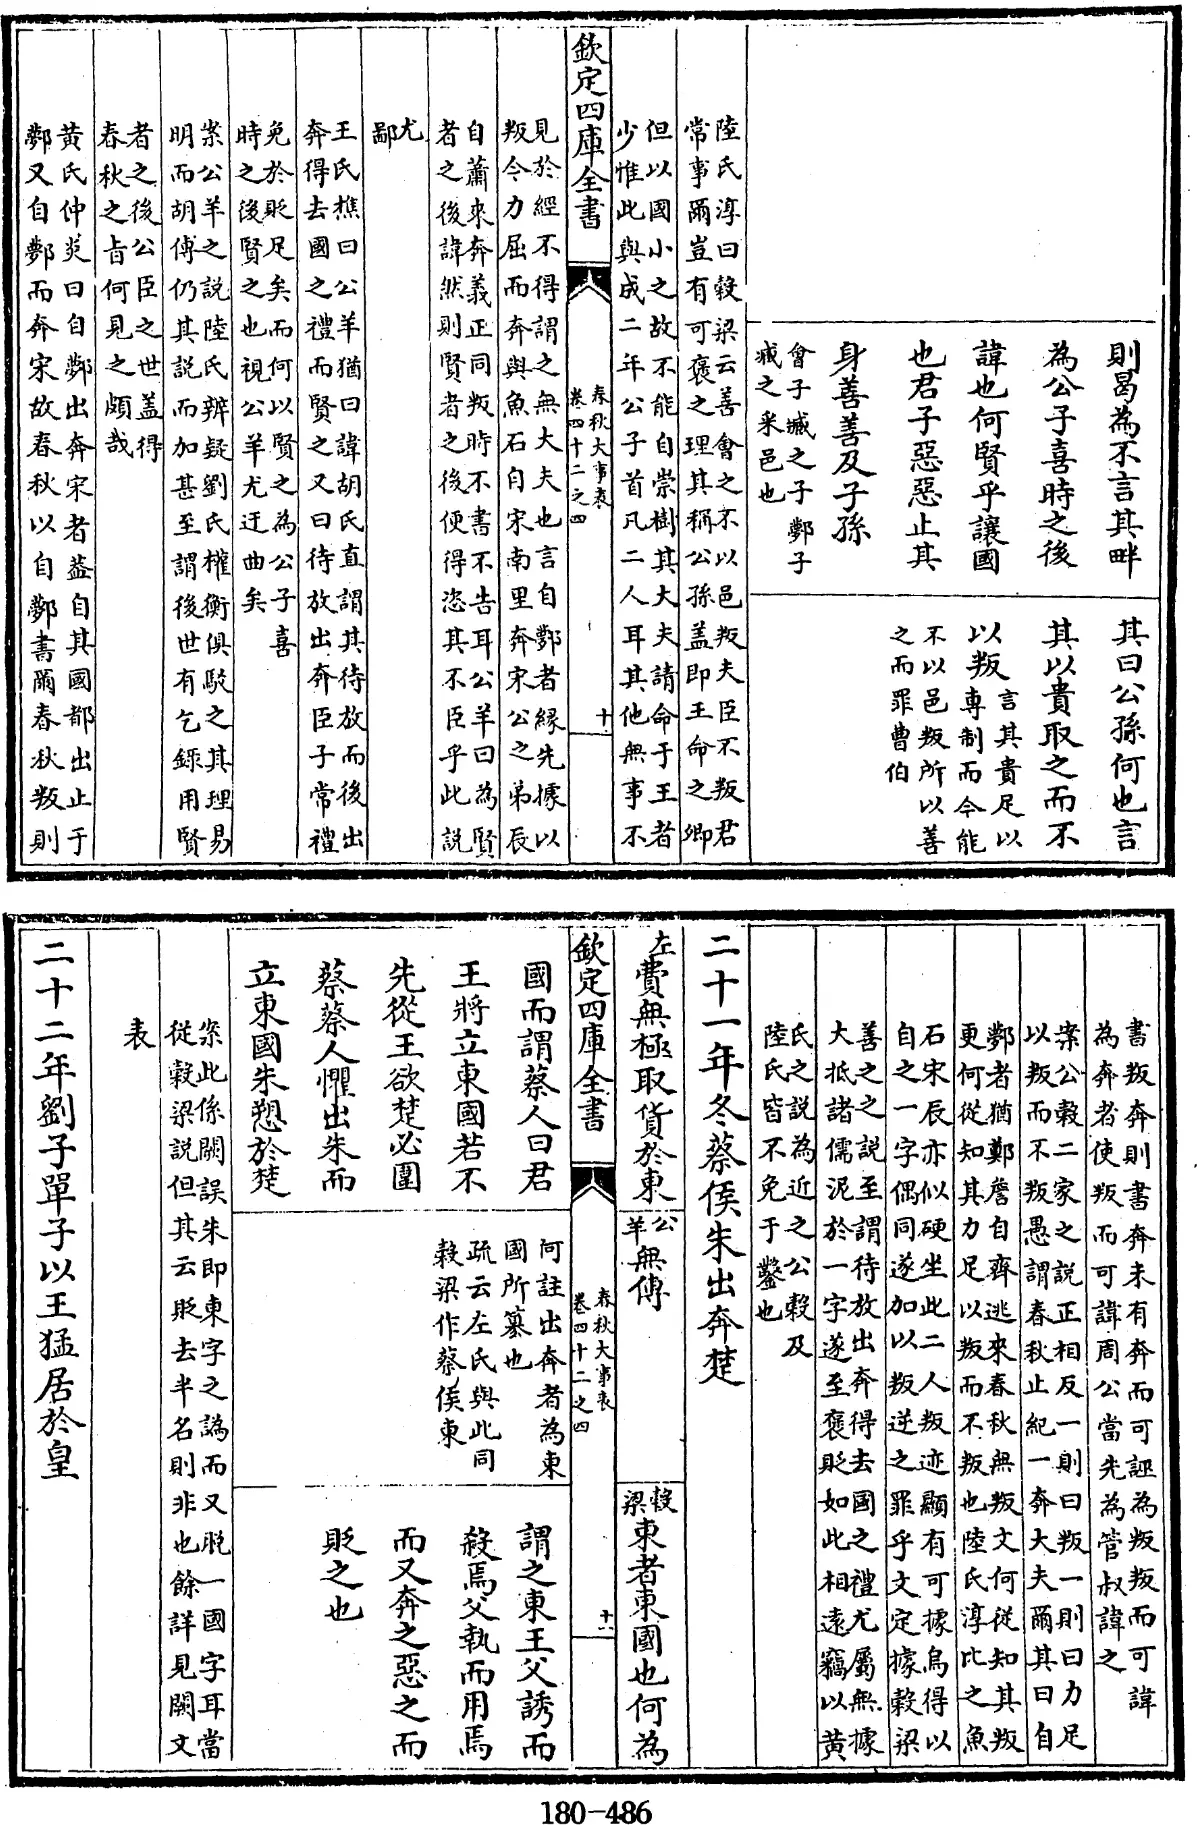 則曷為不言其畔
為公子喜時之後
諱也何賢乎讓國
也君子惡惡止其
身善善及子孫
會子臧之子鄸子
臧之采邑也
其曰公孫何也言
其以貴取之而不
以叛言其貴足以
專制而今能
不以邑叛所以善
之而罪曹伯
陸氏淳曰穀梁云善會之不以邑叛夫臣不叛君
常事爾豈有可褒之理其稱公孫蓋即王命之卿
但以國小之故不能自崇樹其大夫請命于王者
少惟此與成二年公子首凡二人耳其他無事不
欽定四庫全書
春秋大事表
卷四十二之四
十
見於經不得謂之無大夫也言自鄸者緣先據以
叛今力屈而奔與魚石自宋南里奔宋公之弟辰
自蕭來奔義正同叛時不書不告耳公羊曰為賢
者之後諱然則賢者之後便得恣其不臣乎此說
尤
鄙
王氏樵曰公羊猶曰諱胡氏直謂其待放而後出
奔得去國之禮而賢之又曰待放出奔臣子常禮
免於貶足矣而何以賢之為公子喜
時之後賢之也視公羊尤迂曲矣
案公羊之說陸氏辨疑劉氏權衡俱駁之其理易
明而胡傅仍其說而加甚至謂後世有乞錄用賢
者之後公臣之世蓋得
春秋之旨何見之頗哉
黃氏仲炎曰自鄸出奔宋者蓋自其國都出止于
鄸又自鄸而奔宋故春秋以自鄸書爾春秋叛則
書叛奔則書奔未有奔而可誣為叛叛而可諱
為奔者使叛而可諱周公當先為管叔諱之
案公穀二家之說正相反一則曰叛一則曰力足
以叛而不叛愚謂春秋止紀一奔大夫爾其曰自
鄸者猶鄭詹自齊逃來春秋無叛文何從知其叛
更何從知其力足以叛而不叛也陸氏淳比之魚
石宋辰亦似硬坐此二人叛迹顯有可據烏得以
自之一字偶同遂加以叛逆之罪乎文定據穀梁
善之之說至謂待放出奔得去國之禮尤屬無據
大抵諸儒泥於一字遂至褒貶如此相遠竊以黃
氏之說為近之公穀及
陸氏皆不免于鑿也
二十一年冬蔡侯朱出奔楚
左費無極取貨於東
公羊無傳
穀梁東者東國也何為
欽定四庫全書
春秋大事表
卷四十二之四
十一
國而謂蔡人曰君
王將立東國若不
先從王欲楚必圍
蔡蔡人懼出朱而
立東國朱愬於楚
何註出奔者為東
國所篡也
疏云左氏與此同
穀梁作蔡侯東
謂之東王父誘而
殺焉父執而用焉
而又奔之惡之而
貶之也
案此係闕誤朱即東字之譌而又脫一國字耳當
從穀梁說但其云貶去半名則非也餘詳見闕文
表
二十二年劉子單子以王猛居於皇
180-486